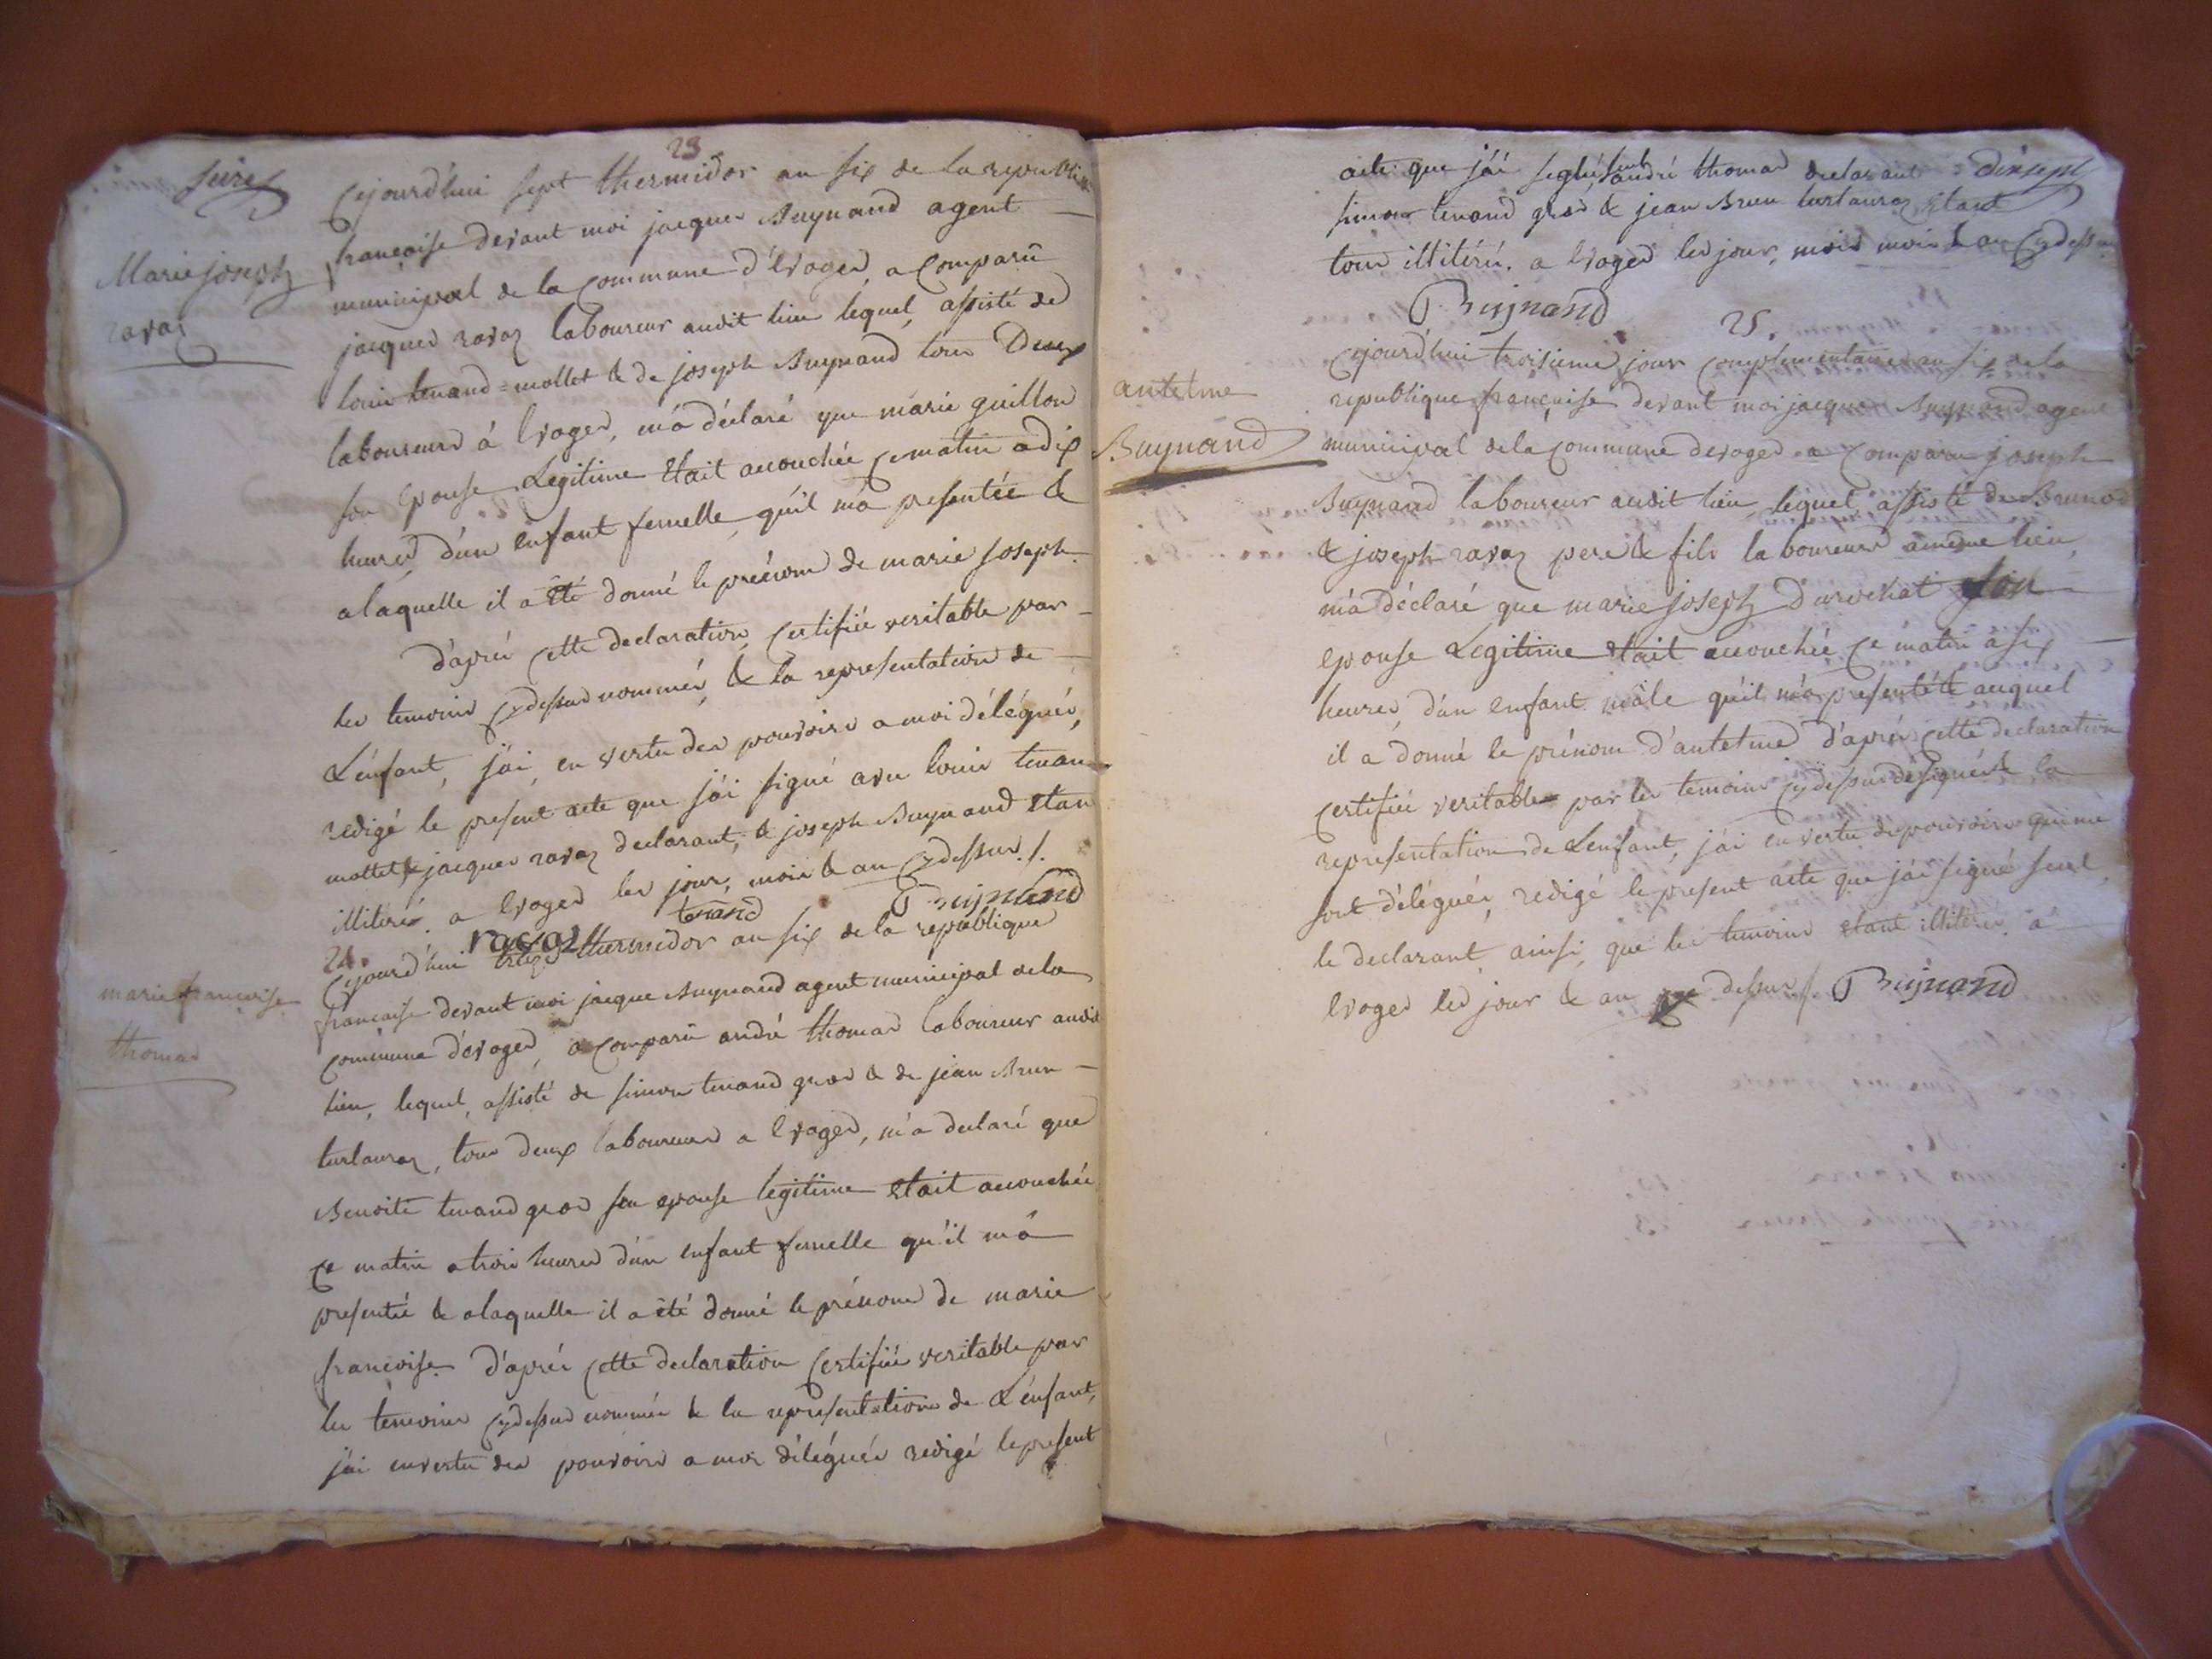 23.
seize
Marie joseph
ravaz
Cejourd'hui sept thermidor an six de la republique
francaise devant moi jacques Buynand agent
municipal de la commune d'Evoges, a comparû
jacques ravaz laboureur audit lieu lequel, assisté de
louis tenand=mollet & de joseph Buynand tous Deux
laboureurs á Evoges, m'a déclaré que marie guillon
son Epouse Legitime Etait accouchée ce matin a dix
heures, d'un enfant femelle qu'il m'a presentée &
a laquelle il a été donné le prénom de marie joseph.
d'après cette declaration, certifiée veritable par
les temoins cy dessus nommés, & la representation de
L'enfant, j'ai, en vertu des pouvoirs a moi délégués,
redigé le present acte que j'ai signé avec louis tenan
mollet & jacques ravaz declarant, & joseph Buynand etan
illiteré. a Evoges les jour, mois & an cy dessus ./.
tenand Buijnand
ravaz
24.
marie françoise
thomas
Cejourd'hui treize thermidor an six de la republique
francaise devant moi jacque Buynand agent municipal de la
commune d'evoges, a comparû andré thomas laboureur audit
lieu, lequel, assisté de simon tenand gros & de jean Brun
turlauraz, tous deux laboureurs a Evoges, m'a declaré que
Benoite tenand gros son epouse legitime etait accouchée
ce matin a trois heures d'un enfant femelle qu'il m'a
presentée & a laquelle il a été donné le prénom de marie
françoise. d'après cette declaration certifiée veritable par
les temoins cy dessus nommés & la representation de L'enfant,
j'ai en vertu des pouvoirs a moi délégués redigé le present
dixsept
acte que j'ai signé, seul andré thomas declarant
simon tenand gros & jean Brun turlauraz, Etant
tous illitérés. a Evoges les jour, mois mois & an cy dessus
Buijnand
25.
antelme
Buynand
Cejourd'hui troisieme jour complementaire an six de la
republique française devant moi jacque Buynand agent
municipal de la commune d'evoges a comparu joseph
Buynand laboureur audit lieu, lequel assisté de Brunod
& joseph ravaz pere & fils laboureurs a même lieu,
m'a déclaré que marie joseph Durochat son
epouse Legitime etait accouchée ce matin a six
heures, d'un enfant mâle qu'il m'a presenté & auquel
il a donné le prénom d'antelme d'après cette declaration
certifiée veritable par les temoins cy dessus designés & la
representation de L'enfant, j'ai en vertu des pouvoirs qui me
sont délégués, redigé le present acte que j'ai signé seul
le declarant ainsi que les temoins etant illiteres. a
Evoges les jour & an que dessus ./. Buijnand